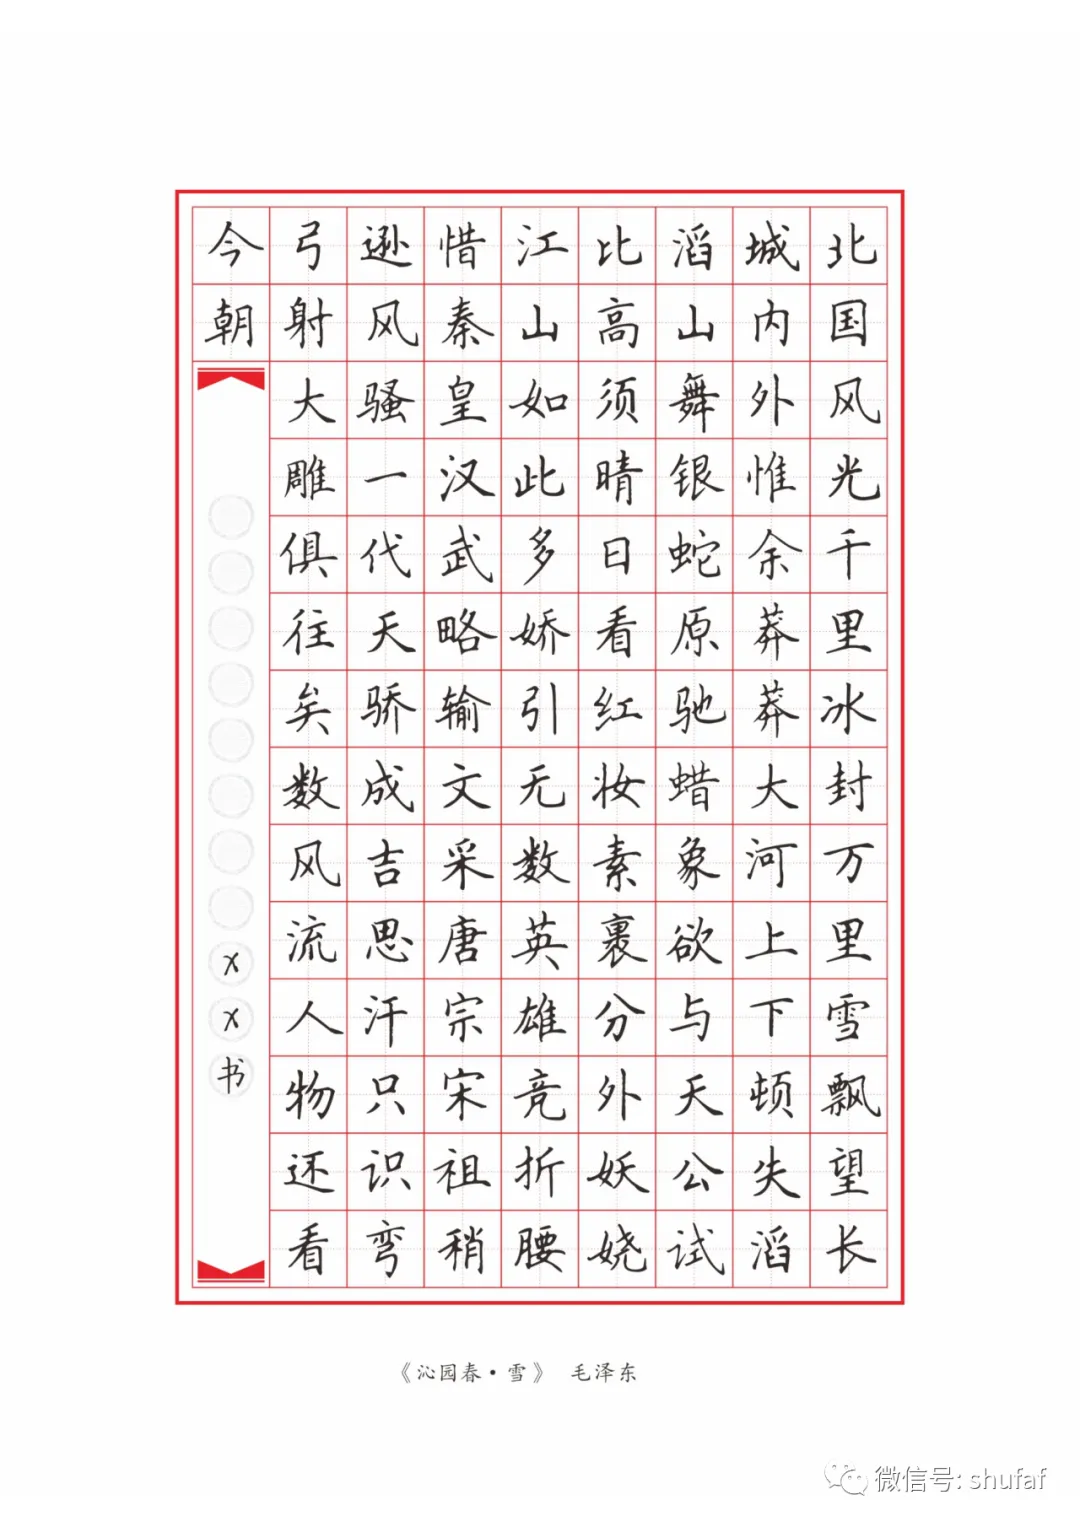 北国风光千里冰封万里雪飘望长
城内外惟余莽莽大河上下顿失滔
滔山舞银蛇原驰蜡象欲与天公试
比高须晴日看红妆素裹分外妖娆
江山如此多娇引无数英雄竞折腰
惜秦皇汉武略输文采唐宗宋祖稍
逊风骚一代天骄成吉思汗只识弯
弓射大雕俱往矣数风流人物还看
今朝
××书
《沁园春·雪》 毛泽东
微信号: shufaf